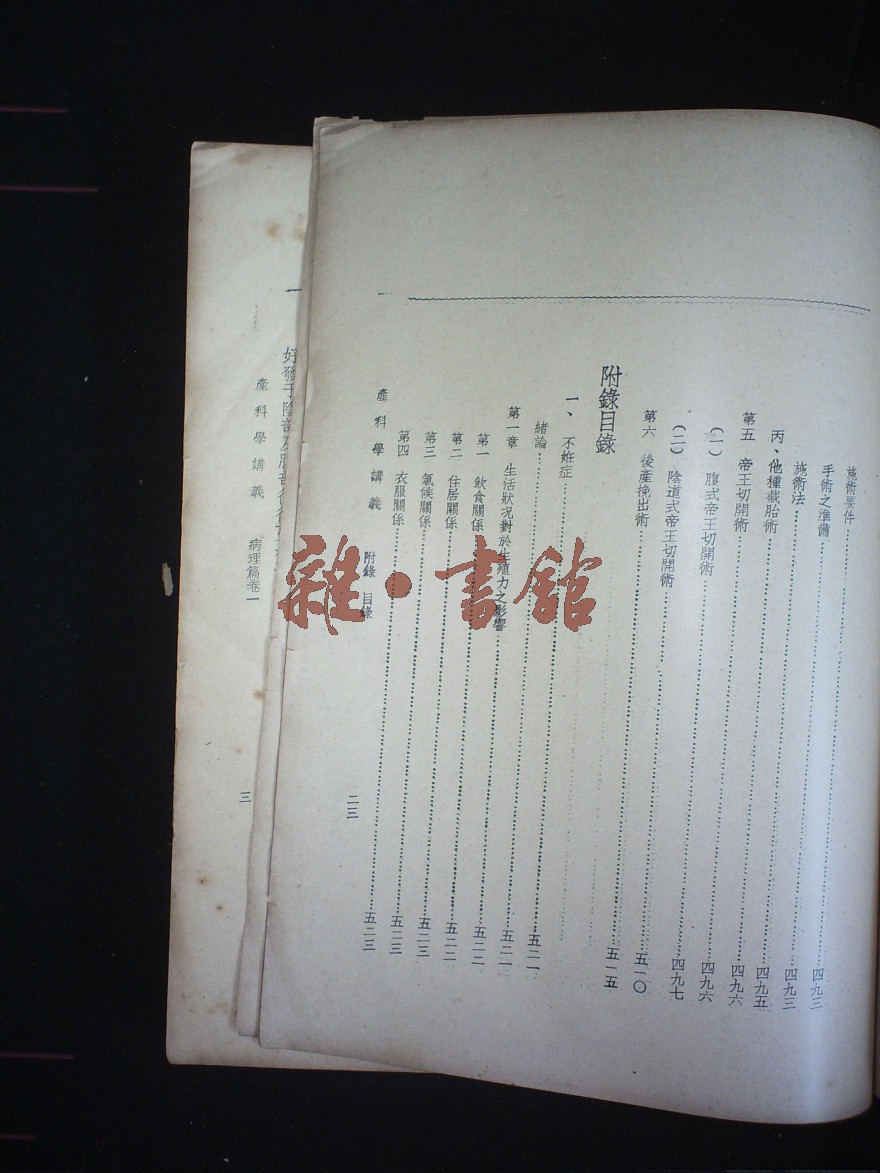 施術要件……四九三
手術之準備……四九三
施術法……四九五
丙、他種截胎術……四九六
第五 帝王切開術……四九六
(一) 腹式帝王切開術……四九七
(二) 陰道式帝王切開術……五一〇
第六 後產挽出術……五一五
附錄目錄
一、不姙症……五二一
緒論……五二一
第一章 生活狀况對於生殖力之影響……五二二
第一 飲食關係……五二二
第二 住居關係……五二三
第三 氣候關係……五二三
第四 衣服關係……五二三
產科學講義 附錄 目錄 二三
好發于陰部及
產科學講義 病理篇卷一 三
雜·書館